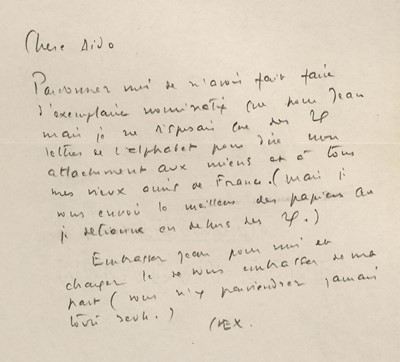 Chere Dido
Pardonner moi de n'avoir fait faire
d'exemplaire nominatif que pour Jean
mais je ne disposais que des 24
lettres de l'alphabet pour dire mon
attachement aux miens et à tous
mes vieux amis de France. (mais je
vous envoi le meilleur des papiers que
je détienne en dehors des 24.)
Embrasser Jean pour moi et
charger le de vous embrasser de ma
part (vous n'y parviendrez jamais
toute seule.)